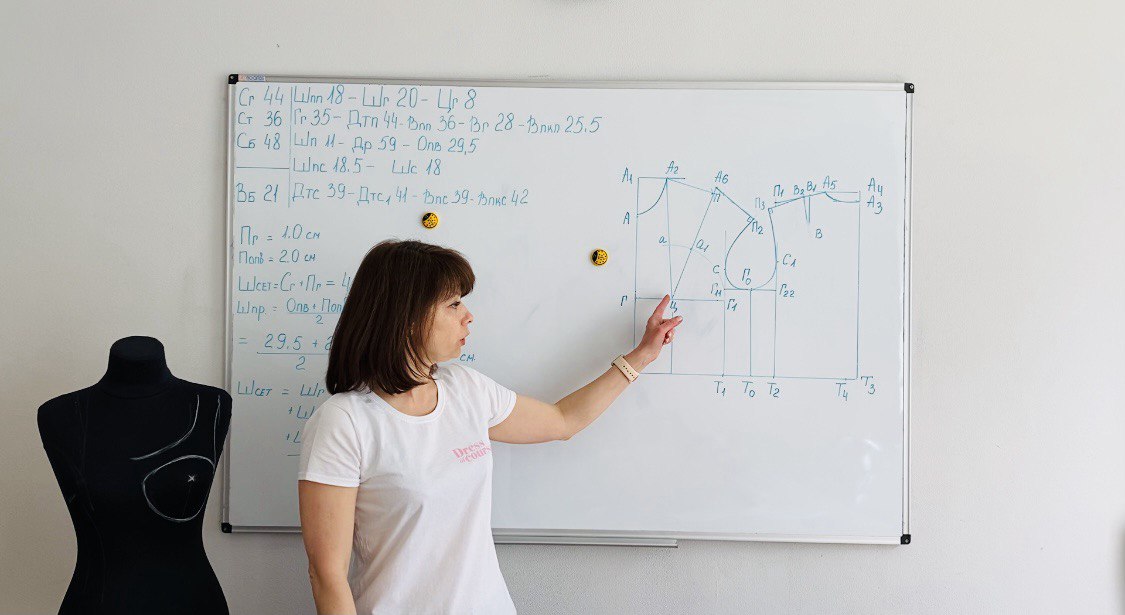 Сг 44 Шпп 18 - Шг 20 - Цг 8
Ст 36 Гг 35 - Дтп 44 - Впп 36 - Вг 28 - Впкп 25.5
Сб 48 Шп 11 - Др 59 - Опв 29,5
Шпс 18.5 - Шс 18
Вб 21 Дтс 39 - Дтс₁ 41 - Впс 39 - Впкс 42
Пг = 1.0 см
Попв = 2.0 см
Шсет = Сг + Пг = 4
Шпр. = Опв + Поп
2
= 29.5 + 2
2
см.
Шсет = Шг
+ Ш
А₁ А₂ А₆ П₁ В₂ В₁ А₅ А₄
П П₃ А₃
А П₂ В
а а₁
С С₁
Г₀
Г Ц Г₁₁ Г₁ Г₂₂
Т₁ Т₀ Т₂ Т₄ Т₃
Dress